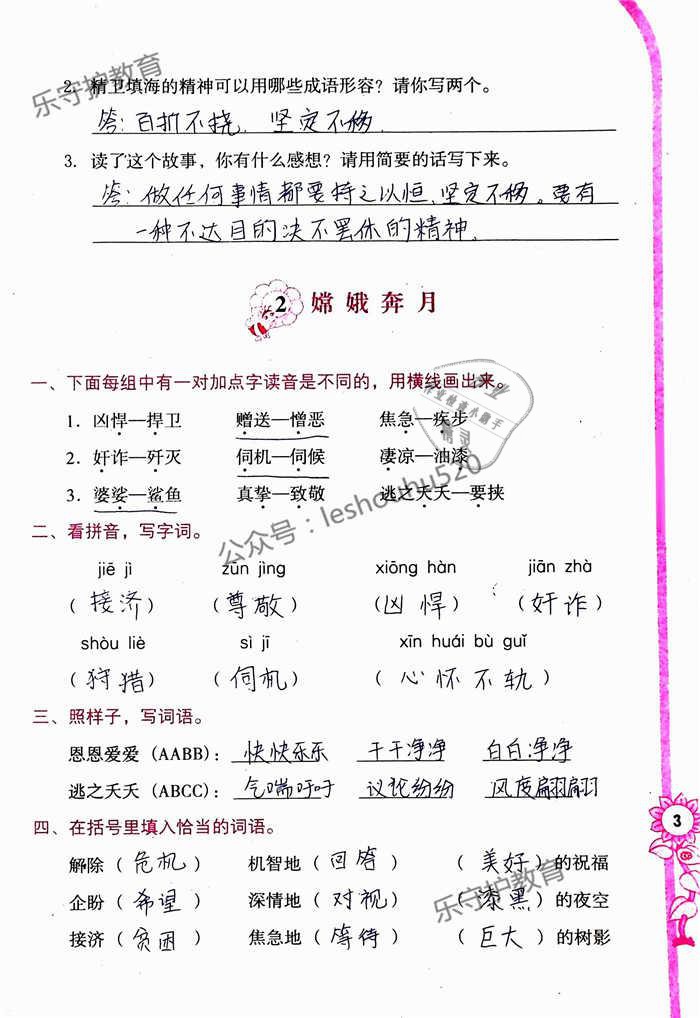 乐守护教育
2. 精卫填海的精神可以用哪些成语形容？请你写两个。
答：百折不挠、坚定不移.
3. 读了这个故事，你有什么感想？请用简要的话写下来。
答：做任何事情都要持之以恒、坚定不移。要有
一种不达目的决不罢休的精神.
2 嫦娥奔月
一、下面每组中有一对加点字读音是不同的，用横线画出来。
1．凶悍—捍卫 赠送—憎恶 焦急—疾步
2．奸诈—歼灭 伺机—伺候 凄凉—油漆
3．婆娑—鲨鱼 真挚—致敬 逃之夭夭—要挟
作业检查小助手
精灵
公众号：leshouhu520
二、看拼音，写字词。
jiē jì zūn jìng xiōng hàn jiān zhà
（接济） （尊敬） （凶悍） （奸诈）
shòu liè sì jī xīn huái bù guǐ
（狩猎） （伺机） （心怀不轨）
三、照样子，写词语。
恩恩爱爱（AABB）：快快乐乐 干干净净 白白净净
逃之夭夭（ABCC）：气喘吁吁 议论纷纷 风度翩翩
四、在括号里填入恰当的词语。
解除（危机） 机智地（回答） （美好）的祝福
企盼（希望） 深情地（对视） （漆黑）的夜空
接济（贫困） 焦急地（等待） （巨大）的树影
乐守护教育
3